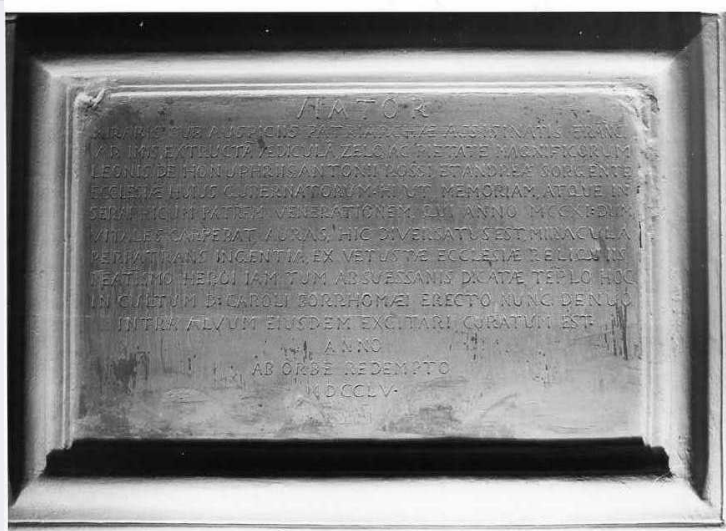 VIATOR
MIRARIS SUB AUSPICIIS PATRIARCHÆ ASSISINATIS FRANC.
AB IMIS EXTRUCTA ÆDICULA ZELO AC PIETATE MAGNIFICORUM
LEONIS DE HONUPHRIIS ANTONII ROSSI ET ANDREA SORGENTE
ECCLESIÆ HUIUS GUBERNATORUM HI UT MEMORIAM, ATQUE IN
SERAPHICUM PATREM VENERATIONEM, QUI ANNO MCCXI DUM
VITALES CARPERAT AURAS, HIC DIVERSATUS EST, MIRACULA
PERPATRANS INGENTIA, EX VETUSTÆ ECCLESIÆ RELIQUIIS
BEATISMO HEROI IAM TUM AB SUESSANIS DICATÆ TEPLO HOC
IN CULTUM D. CAROLI BORRHOMÆI ERECTO NUNC DENUO
INTRA ALVUM EIUSDEM EXCITARI CURATUM EST.
ANNO
AB ORBE REDEMPTO
MDCCLV.